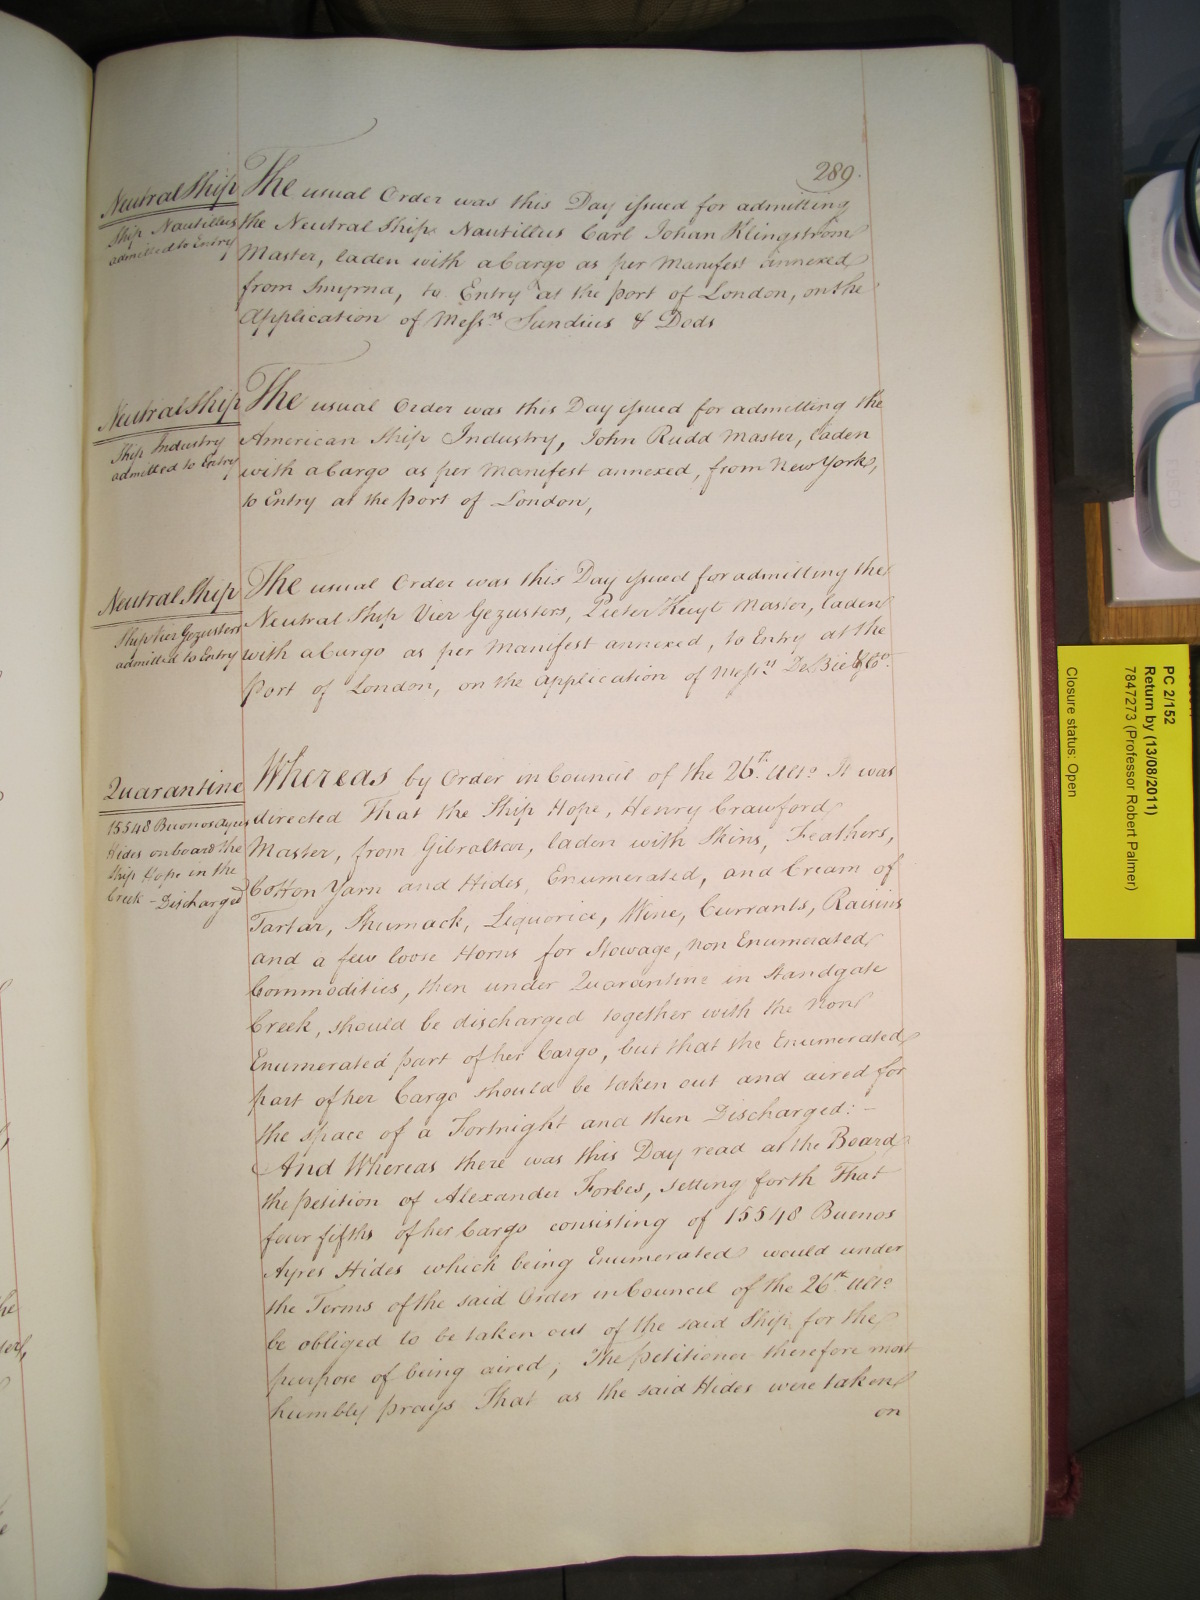 289.
Neutral Ship
Ship Nautillus
admitted to Entry
The usual Order was this Day issued for admitting
the Neutral Ship Nautillus Carl Johan Klingström
Master, laden with a Cargo as per Manifest annexed
from Smyrna, to Entry at the port of London, on the
Application of Messrs Sundius & Dods
Neutral Ship
Ship Industry
admitted to Entry
The usual Order was this Day issued for admitting the
American Ship Industry, John Rudd Master, laden
with a Cargo as per Manifest annexed, from New York,
to Entry at the port of London,
Neutral Ship
Ship Vier Gezusters
admitted to Entry
The usual Order was this Day issued for admitting the
Neutral Ship Vier Gezusters, Pieter Kuyl Master, laden
with a Cargo as per Manifest annexed, to Entry at the
Port of London, on the application of Messrs DeBie & Co.
Quarantine
15548 Buenos Ayres
Hides on board the
Ship Hope in the
Creek - Discharged
Whereas by Order in Council of the 26th Ulto It was
directed That the Ship Hope, Henry Crawford
Master, from Gibraltar, laden with Skins, Feathers,
Cotton Yarn and Hides, Enumerated, and Cream of
Tartar, Shumack, Liquorice, Wine, Currants, Raisins
and a few loose Horns for Stowage, non Enumerated
Commodities, then under Quarantine in Standgate
Creek, should be discharged together with the Non
Enumerated part of her Cargo, but that the Enumerated
part of her Cargo should be taken out and aired for
the space of a Fortnight and then Discharged: -
And Whereas there was this Day read at the Board
the petition of Alexander Forbes, setting forth That
four fifths of her Cargo consisting of 15548 Buenos
Ayres Hides which being Enumerated would under
the Terms of the said Order in Council of the 26th Ulto
be obliged to be taken out of the said Ship for the
purpose of being aired; The petitioner therefore most
humbly prays That as the said Hides were taken
on
PC 2/152
Return by (13/08/2011)
7847273 (Professor Robert Palmer)
Closure status: Open